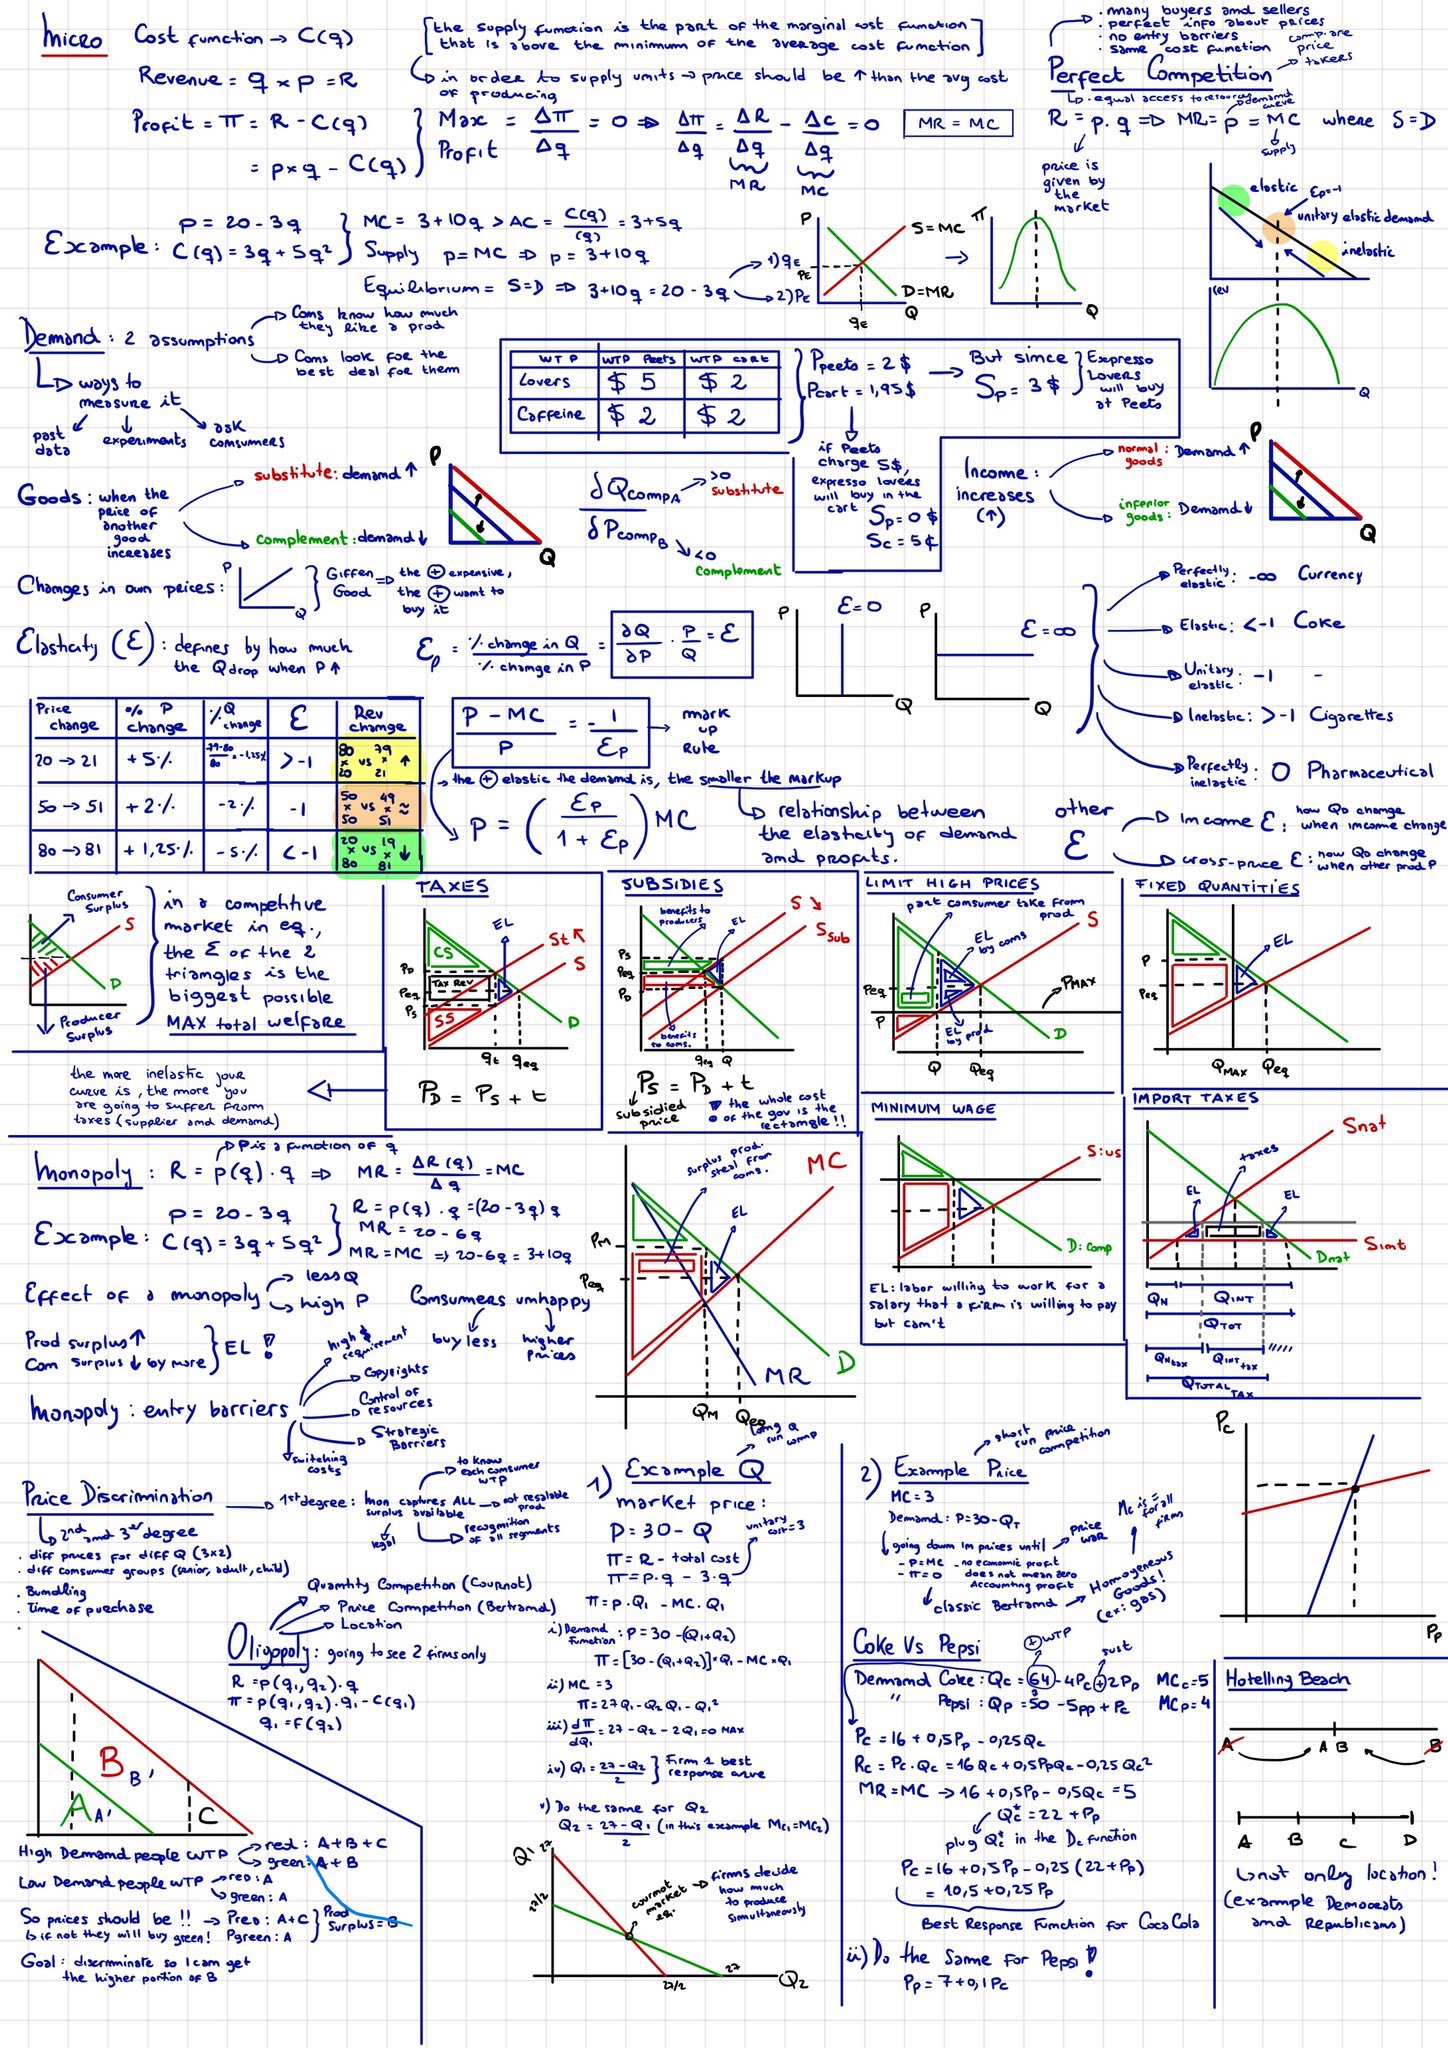 Micro
Cost function → C(q)
Revenue = q × p = R
Profit = π = R - C(q)
= p×q - C(q)
[the supply function is the part of the marginal cost function
that is above the minimum of the average cost function]
in order to supply units → price should be ↑ than the avg cost
of producing
Max Profit = Δπ/Δq = 0 ⇒ Δπ/Δq = ΔR/Δq - Δc/Δq = 0
MR MC
MR = MC
· many buyers and sellers
· perfect info about prices
· no entry barriers
· same cost function
comp. are
price
takers
Perfect Competition
· equal access to resources
demand
curve
R = p · q ⇒ MR = p = MC where S=D
supply
price is
given by
the
market
Example: p = 20 - 3q
C(q) = 3q + 5q²
MC = 3 + 10q > AC = C(q)/(q) = 3+5q
Supply p=MC ⇒ p = 3+10q
Equilibrium = S=D ⇒ 3+10q = 20 - 3q
1) qE
2) PE
P
PE
S=MC
D=MR
qE
Q
π
Q
elastic
Ep=-1
unitary elastic demand
inelastic
rev
Q
Demand: 2 assumptions
Cons know how much
they like a prod
Cons look for the
best deal for them
ways to
measure it
past
data
experiments
ask
consumers
WTP WTP Peets WTP cart
Lovers $ 5 $ 2
Caffeine $ 2 $ 2
Ppeets = 2$
Pcart = 1,95$
But since
Sp = 3$
Expresso
Lovers
will buy
at Peets
if Peets
charge 5$,
expresso lovers
will buy in the
cart
Sp = 0 $
Sc = 5¢
Goods: when the
price of
another
good
increases
substitute: demand ↑
complement: demand ↓
P
Q
δQcompA
δPcompB
>0
substitute
<0
complement
Income:
increases
(↑)
normal
goods: Demand ↑
inferior
goods: Demand ↓
P
Q
Changes in own prices:
P
Q
Giffen
Good ⇒ the ⊕ expensive,
the ⊕ want to
buy it
Elasticity (Ɛ): defines by how much
the Q drop when P ↑
Ɛp = % change in Q / % change in P = ∂Q/∂P · P/Q = Ɛ
P
Ɛ=0
Q
P
Ɛ=∞
Q
Perfectly
elastic: -∞ Currency
Elastic: <-1 Coke
Unitary
elastic: -1 -
Inelastic: >-1 Cigarettes
Perfectly
inelastic: 0 Pharmaceutical
Price
change
% P
change
% Q
change
Ɛ
Rev
change
20 → 21 +5% 79-80/80 = -1,25% >-1 80 × 20 vs 79 × 21 ↑
50 → 51 +2% -2% -1 50 × 50 vs 49 × 51 ≈
80 → 81 +1,25% -5% <-1 20 × 80 vs 19 × 81 ↓
P - MC / P = - 1/Ɛp → mark
up
Rule
→ the ⊕ elastic the demand is, the smaller the markup
P = (Ɛp / 1 + Ɛp) MC
relationship between
the elasticity of demand
and profits.
other
Ɛ
Income Ɛ: how QD change
when income change
cross-price Ɛ: how QD change
when other prod P
Consumer
Surplus
S
D
Producer
Surplus
in a competitive
market in eq.,
the Ɛ of the 2
triangles is the
biggest possible
MAX total welfare
TAXES
CS
EL
St
S
PD
Tax Rev
Peq
Ps
SS
D
qt qeq
PD = PS + t
the more inelastic your
curve is, the more you
are going to suffer from
taxes (supplier and demand)
SUBSIDIES
benefits to
producers
EL
S
Ssub
Ps
Peq
PD
benefits
to cons.
qeq Q
PS = PD + t
subsidied
price
the whole cost
of the gov is the
rectangle!!
LIMIT HIGH PRICES
part consumer take from
prod
EL
by cons
S
Peq
PMAX
P
EL
by prod
D
Q Qeq
FIXED QUANTITIES
EL
P
Peq
QMAX Qeq
MINIMUM WAGE
S:us
D:comp
EL: labor willing to work for a
salary that a firm is willing to pay
but can't
IMPORT TAXES
Snat
taxes
EL
EL
Sint
Dnat
QN QINT
QTOT
QNtax QINTtax
QTOTAL TAX
Monopoly: R = p(q) · q ⇒ MR = ΔR(q)/Δq = MC
P is a function of q
Example: p = 20 - 3q
C(q) = 3q + 5q²
R = p(q) · q = (20-3q) q
MR = 20 - 6q
MR = MC ⇒ 20-6q = 3+10q
Effect of a monopoly
less Q
high P
Consumers unhappy
buy less
higher
prices
Prod surplus ↑
Con surplus ↓ by more
EL !
Monopoly: entry barriers
high $
requirement
Copyrights
Control of
resources
Strategic
Barriers
switching
costs
surplus prod.
steal from
cons.
MC
EL
PM
Peq
MR
D
QM Qeq
Price Discrimination
1st degree: mon captures ALL
surplus available
to know
each consumer
WTP
not resalable
prod
recognition
of all segments
legal
2nd and 3rd degree
· diff prices for diff Q (3x2)
· diff consumer groups (senior, adult, child)
· Bundling
· Time of purchase
Quantity Competition (Cournot)
Price Competition (Bertrand)
Location
Oligopoly: going to see 2 firms only
R = p(q1, q2) · q
π = p(q1, q2) · q1 - C(q1)
q1 = f(q2)
B
B'
A
A'
C
High Demand people WTP
red: A+B+C
green: A+B
Low Demand people WTP
red: A
green: A
So prices should be !! → Pred: A+C
↳ if not they will buy green! Pgreen: A
Prod
Surplus = B
Goal: discriminate so I can get
the higher portion of B
1) Example Q
long Q
run comp
market price:
P = 30 - Q
unitary
cost = 3
π = R - total cost
π = P·q - 3·q
π = P·Q1 - MC·Q1
i) Demand
function: P = 30-(Q1+Q2)
π = [30-(Q1+Q2)]×Q1 - MC×Q1
ii) MC = 3
π = 27Q1 - Q2Q1 - Q1²
iii) dπ/dQ1 = 27 - Q2 - 2Q1 = 0 MAX
iv) Q1 = 27-Q2/2
Firm 1 best
response curve
v) Do the same for Q2
Q2 = 27-Q1/2 (in this example MC1=MC2)
Q1
27
27/2
cournot
market
eq.
firms decide
how much
to produce
simultaneously
27/2
27
Q2
2) Example Price
short
run price
competition
MC = 3
Demand: P=30-QT
going down in prices until
- P=MC
- π=0
- no economic profit
does not mean zero
Accounting profit
price
war
Mc is =
for all
firms
classic Bertrand
Homogeneous
Goods!
(ex: gas)
PC
PP
Coke Vs Pepsi
⊕ WTP
sust
Demand Coke: QC = 64 - 4PC + 2PP MCC=5
" Pepsi: QP = 50 - 5PP + PC MCP=4
PC = 16 + 0,5PP - 0,25QC
RC = PC·QC = 16QC + 0,5PPQC - 0,25QC²
MR=MC → 16 + 0,5PP - 0,5QC = 5
QC* = 22 + PP
plug QC* in the DC function
PC = 16 + 0,5PP - 0,25 (22+PP)
= 10,5 + 0,25 PP
Best Response Function for Coca Cola
ii) Do the same for Pepsi!
PP = 7 + 0,1PC
Hotelling Beach
A A B B
A B C D
↳ not only location!
(example Democrats
and Republicans)